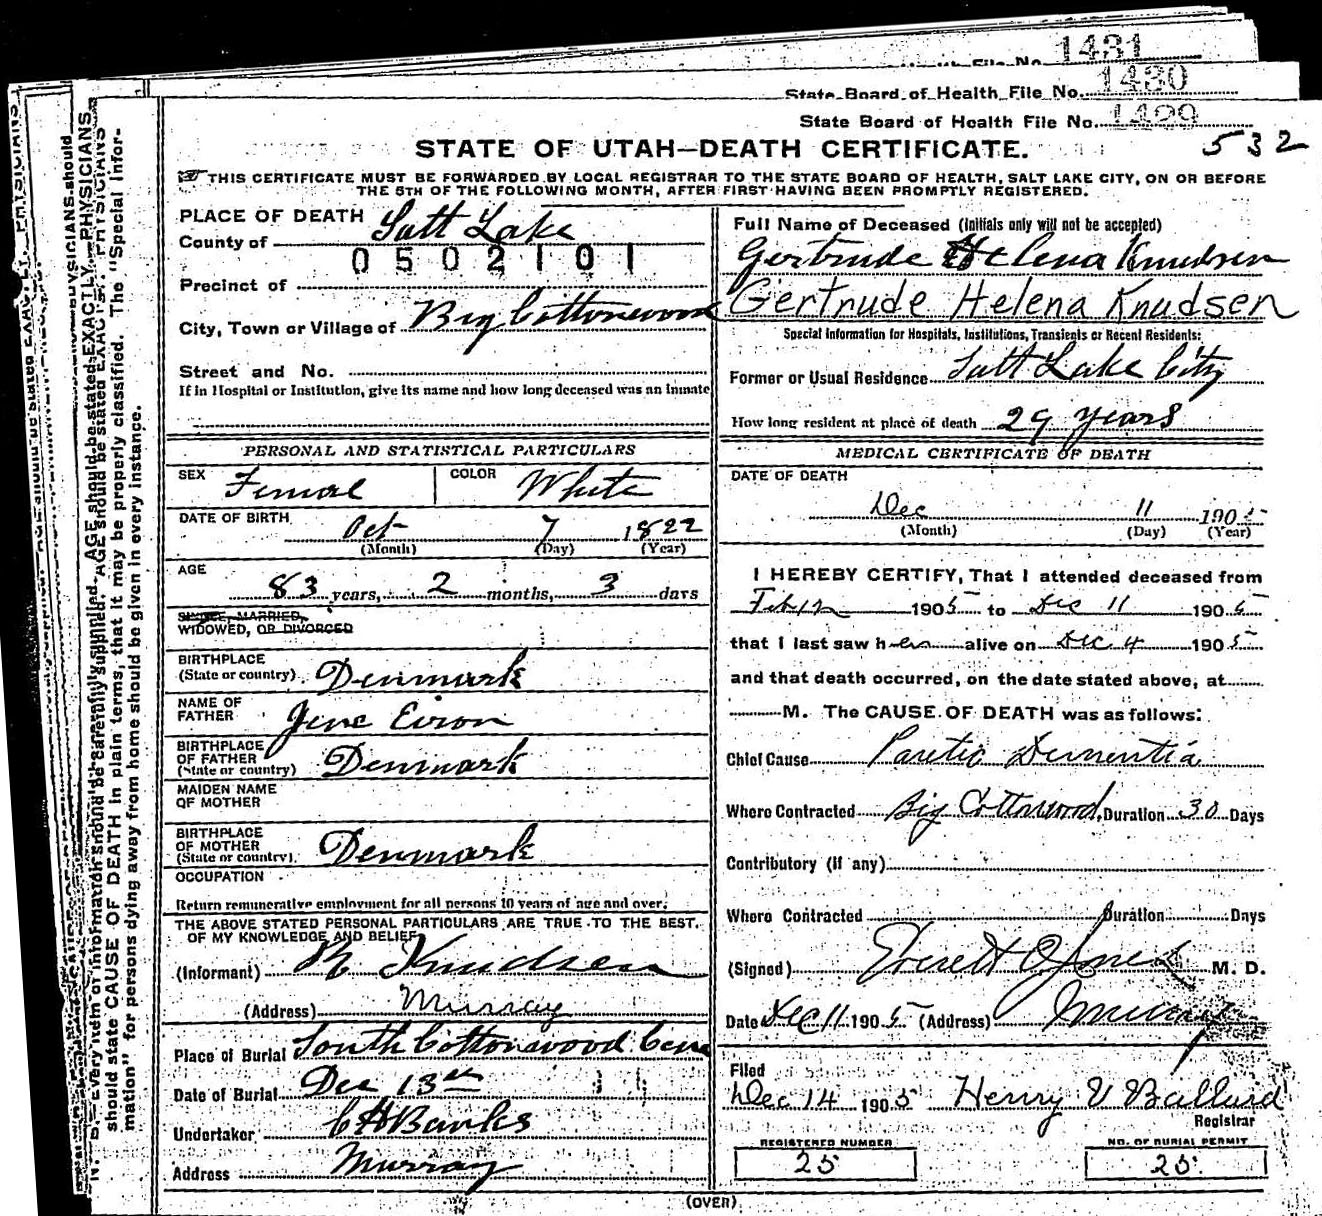 1431
State Board of Health File No. 1430
State Board of Health File No. 1429
532
STATE OF UTAH—DEATH CERTIFICATE.
THIS CERTIFICATE MUST BE FORWARDED BY LOCAL REGISTRAR TO THE STATE BOARD OF HEALTH, SALT LAKE CITY, ON OR BEFORE
THE 5TH OF THE FOLLOWING MONTH, AFTER FIRST HAVING BEEN PROMPTLY REGISTERED.
PLACE OF DEATH
County of Salt Lake
0502101
Precinct of
City, Town or Village of Big Cottonwood
Street and No.
If in Hospital or Institution, give its name and how long deceased was an inmate
PERSONAL AND STATISTICAL PARTICULARS
SEX Female COLOR White
DATE OF BIRTH Oct 7 1822
(Month) (Day) (Year)
AGE 83 years, 2 months, 3 days
SINGLE, MARRIED,
WIDOWED, OR DIVORCED
BIRTHPLACE
(State or country) Denmark
NAME OF
FATHER Jens
BIRTHPLACE
OF FATHER
(State or country) Denmark
MAIDEN NAME
OF MOTHER
BIRTHPLACE
OF MOTHER
(State or country) Denmark
OCCUPATION
Return remunerative employment for all persons 10 years of age and over.
THE ABOVE STATED PERSONAL PARTICULARS ARE TRUE TO THE BEST
OF MY KNOWLEDGE AND BELIEF
(Informant) R Knudsen
(Address) Murray
Place of Burial South Cottonwood Cem
Date of Burial Dec 13th
Undertaker C H Banks
Address Murray
Full Name of Deceased (Initials only will not be accepted)
Gertrude Helena Knudsen
Gertrude Helena Knudsen
Special Information for Hospitals, Institutions, Transients or Recent Residents:
Former or Usual Residence Salt Lake City
How long resident at place of death 29 years
MEDICAL CERTIFICATE OF DEATH
DATE OF DEATH
Dec 11 1905
(Month) (Day) (Year)
I HEREBY CERTIFY, That I attended deceased from
Feb 12 1905 to Dec 11 1905
that I last saw her alive on Dec 4 1905
and that death occurred, on the date stated above, at
M. The CAUSE OF DEATH was as follows:
Chief Cause Paretic Dementia
Where Contracted Big Cottonwood Duration 30 Days
Contributory (if any)
Where Contracted Duration Days
(Signed) Everett O Jones M. D.
Date Dec 11 1905 (Address) Murray
Filed
Dec 14 1905 Henry V Ballard
Registrar
REGISTERED NUMBER
25
NO. OF BURIAL PERMIT
25
(OVER)
N. B.—Every item of information should be carefully supplied. AGE should be stated EXACTLY. PHYSICIANS
should state CAUSE OF DEATH in plain terms, that it may be properly classified. The "Special Infor-
mation" for persons dying away from home should be given in every instance.